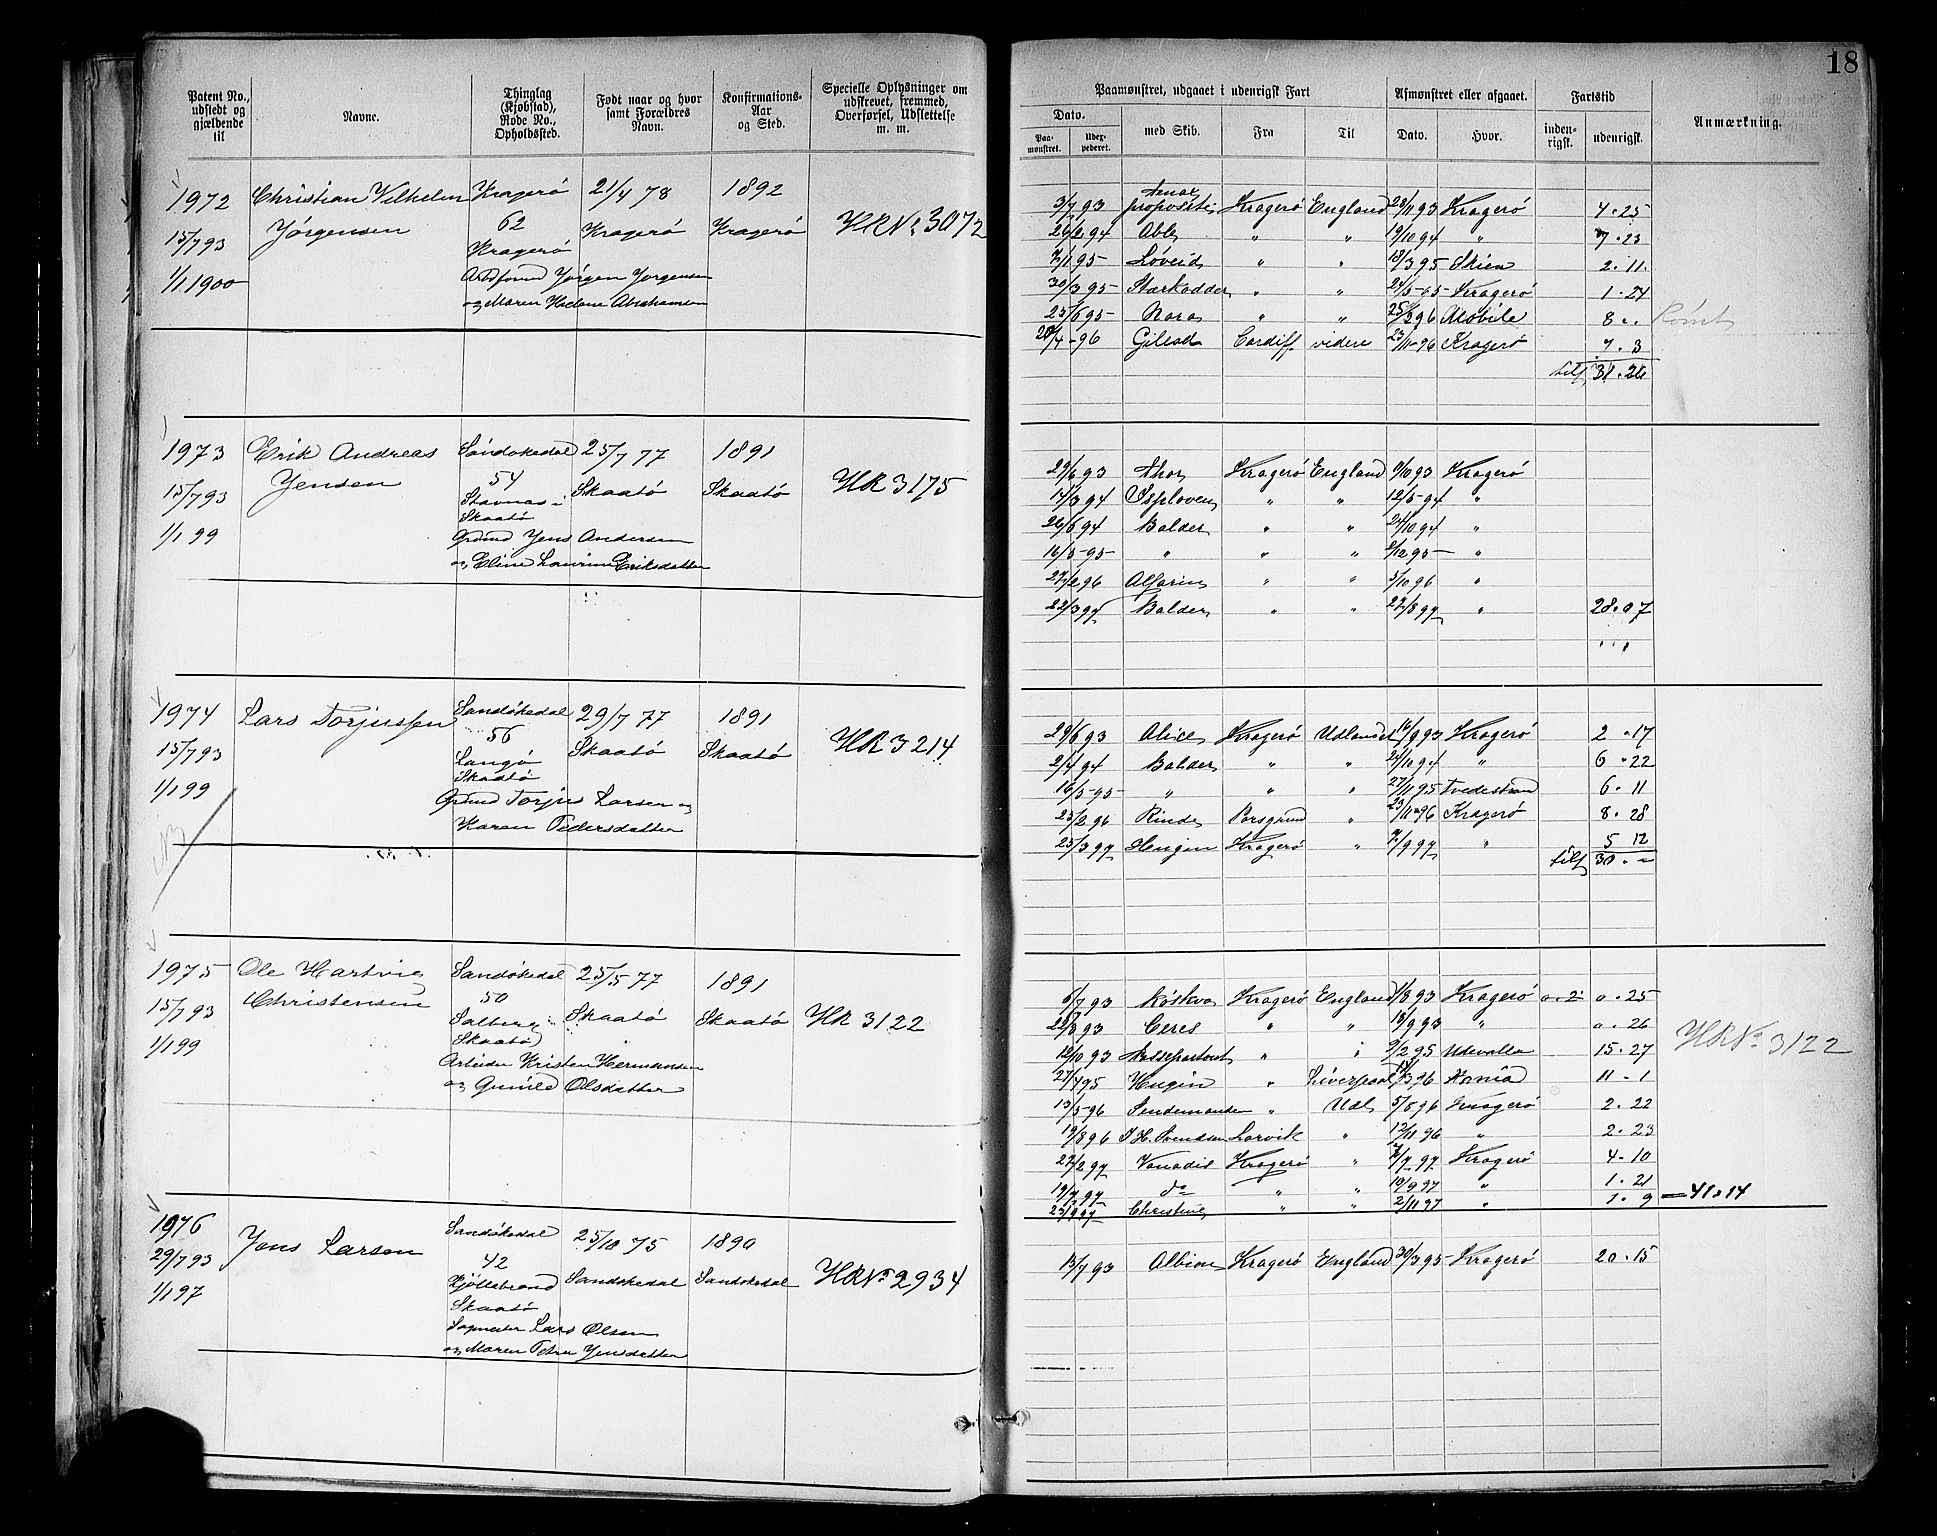 18
Patent No., udstedt og gjældende til
Navne.
Thinglag (Kjøbstad), Rode No., Opholdssted.
Født naar og hvor samt Forældres Navn.
Konfirmations-Aar og Sted.
Specielle Oplysninger om udskrevet, fremmed, Overførsel, Udslettelse m. m.
Paamønstret, udgaaet i udenrigsk Fart
Afmønstret eller afgaaet.
Fartstid
Anmærkning.
Dato.
Paa-mønstret.
Udex-pederet.
med Skib.
Fra
Til
Dato.
Hvor.
inden-rigsk.
udenrigsk.
1972 Christian Vilhelm Kragerö 21/4 78 1892
15/7 93 Jörgensen 62 Kragerö Kragerö HR No 3072
Kragerö
1/1 1900
Jörgen Jörgensen
og Maren Helene Abrahamsen
3/7 93 propositi Kragerö England 28/11 93 Kragerö 4. 25
26/2 94 Able " " 19/10 94 " 7. 23
7/1 95 Löveid " " 18/3 95 Skien 2. 11.
30/3 95 Starkodder " " 24/5 95 Kragerö 1. 24
25/6 95 Nora " " 25/2 96 Mobile 8 " Römt
20/4 96 Gilead Cardiff videre 23/11 96 Kragerö 7. 3
tils 31. 26
1973 Erik Andreas Sandökedal 25/7 77 1891
15/7 93 Jensen 54 Skaatö Skaatö HR 3175
Stavnas
Skaatö
1/1 99 Grdmd Jens Andersen
og Eline Laurine Eriksdatter
29/6 93 Thor Kragerö England 9/10 93 Kragerö
14/3 94 Isploven " " 12/5 94 "
26/6 94 Balder " " 24/10 94 "
16/5 95 " " " 2/12 95 "
27/2 96 Alfarin " " 5/10 96 "
22/3 97 Balder " " 27/8 97 " 28. 07
1974 Lars Torjussen Sandökedal 29/7 77 1891
15/7 93 56 Skaatö Skaatö HR 3214
Langö
Skaatö
1/1 99 Grdmd Torjus Larsen og
Karen Pedersdatter
29/6 93 Alice Kragerö Udlandet 16/9 93 Kragerö 2. 17
2/4 94 Balder " " 24/10 94 " 6. 22
16/5 95 " " " 27/11 95 Tvedestrand 6. 11
25/2 96 Rinde Porsgrund " 23/11 96 Kragerö 8. 28
25/3 97 Hugin Kragerö " 7/9 97 " 5 12
tils 30. "
1975 Ole Hartvig Sandökedal 25/5 77 1891
15/7 93 Christensen 50 Skaatö Skaatö HR 3122
Salberg
Skaatö
1/1 99 Arbeider Kristen Hermansen
og Gunild Olsdatter
6/7 93 Röskva Kragerö England 1/8 93 Kragerö 0. 2 0. 25
22/8 93 Ceres " " 18/9 93 " ". 26
12/10 93 Passepartout " " 9/2 95 Udevalla 15. 27 HR No 3122
27/4 95 Hugin " Liverpool 3 96 11 - 1
13/5 96 Sendemanden " Udl 5/8 96 Kragerö 2. 22
19/8 96 J. H. Svendsen Larvik " 12/11 96 " 2. 23
27/2 97 Vanadis Kragerö " 7/7 97 Kragerö 4. 10
19/7 97 do " " 10/9 97 " 1. 21
23/9 97 Christine " " 2/11 97 " 1. 9 = 41. 14
1976 Jens Larsen Sandökedal 25/10 75 1890
29/7 93 42 Sandökedal Sandökedal HR No 2934
Kjöllebrand
1/1 97 Skaatö
Lars Olsen
og Maren Petra Jensdatter
13/7 93 Albion Kragerö England 30/3 95 Kragerö 20. 15